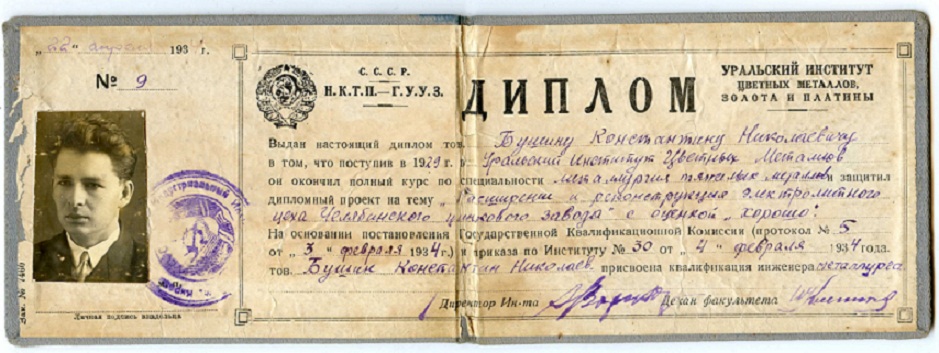 „22“ апреля 193 г.
№ 9
С. С. С. Р.
Н.К.Т.П.—Г.У.У.З.
ДИПЛОМ
УРАЛЬСКИЙ ИНСТИТУТ
ЦВЕТНЫХ МЕТАЛЛОВ,
ЗОЛОТА И ПЛАТИНЫ
Выдан настоящий диплом тов. Бушину Константину Николаевичу
в том, что поступив в 1929 г. в Уральский Институт Цветных Металлов
он окончил полный курс по специальности металлургия тяжелых металлов защитил
дипломный проект на тему „Расширение и реконструкция электролитного
цеха Челябинского цинкового завода" с оценкой „хорошо".
На основании постановления Государственной Квалификационной Комиссии (протокол № 5
от „3" февраля 1934 г.) и приказа по Институту № 30 от „4" февраля 1934 года.
тов. Бушин Константин Николаев. присвоена квалификация инженера металлурга.
Директор Ин-та Декан факультета
Зак. № 2400
Личная подпись владельца